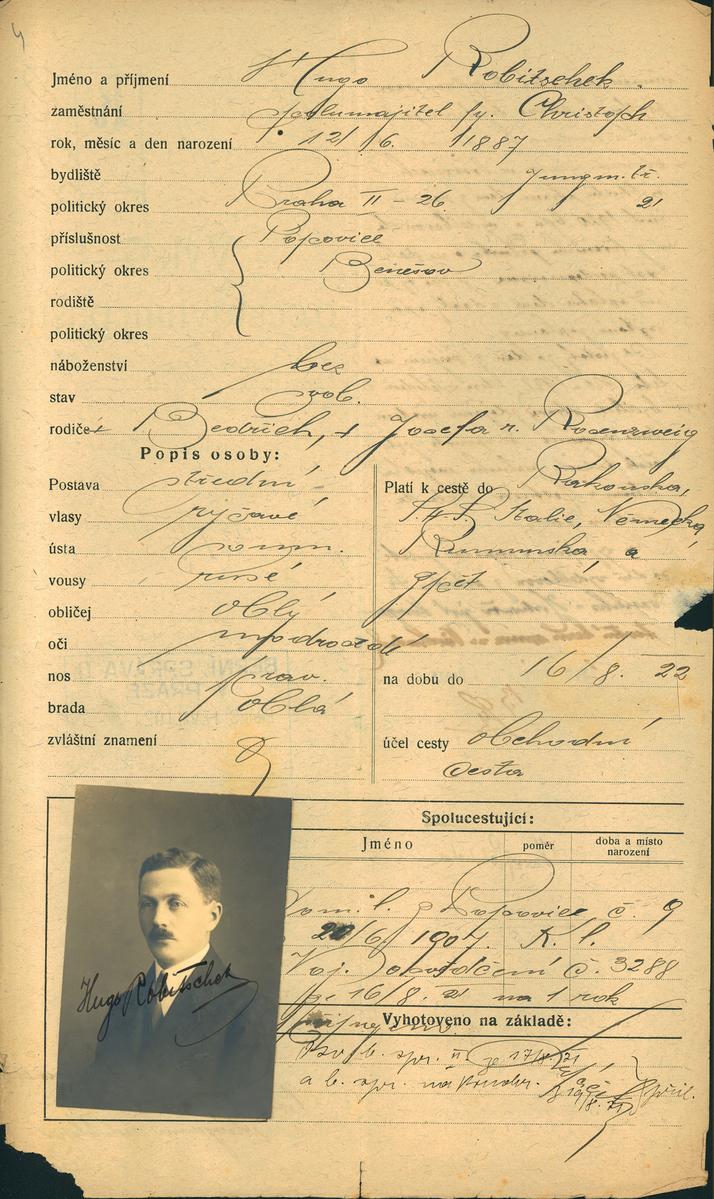 Jméno a příjmení Hugo Robitschek
zaměstnání spolumajitel fy. Christoph
rok, měsíc a den narození 12/6. 1887
bydliště Jungm. tř.
politický okres Praha II – 26 21
příslušnost Popovice
politický okres Benešov
rodiště
politický okres
náboženství bez
stav svob.
rodiče + Bedřich, + Josefa r. Rosenzweig
Popis osoby:
Postava střední
vlasy ryšavé
ústa soum.
vousy rusé
obličej oblý
oči modrošedé
nos prav.
brada oblá
zvláštní znamení
Platí k cestě do Rakouska,
Italie, Německa,
Rumunska, a
zpět
na dobu do 16/8. 22
účel cesty obchodní
cesta
Spolucestující:
Jméno poměr doba a místo narození
Dom. l. z Popovice č. 9
20/6. 1907. K. l.
Voj. osvědčení č. 3288
16/8. 21 na 1 rok
Vyhotoveno na základě:
b. spr. II. ze 17/8. 21
a b. spr. příl.
Hugo Robitschek
BERNÍ SPRÁVA II.
V PRAZE